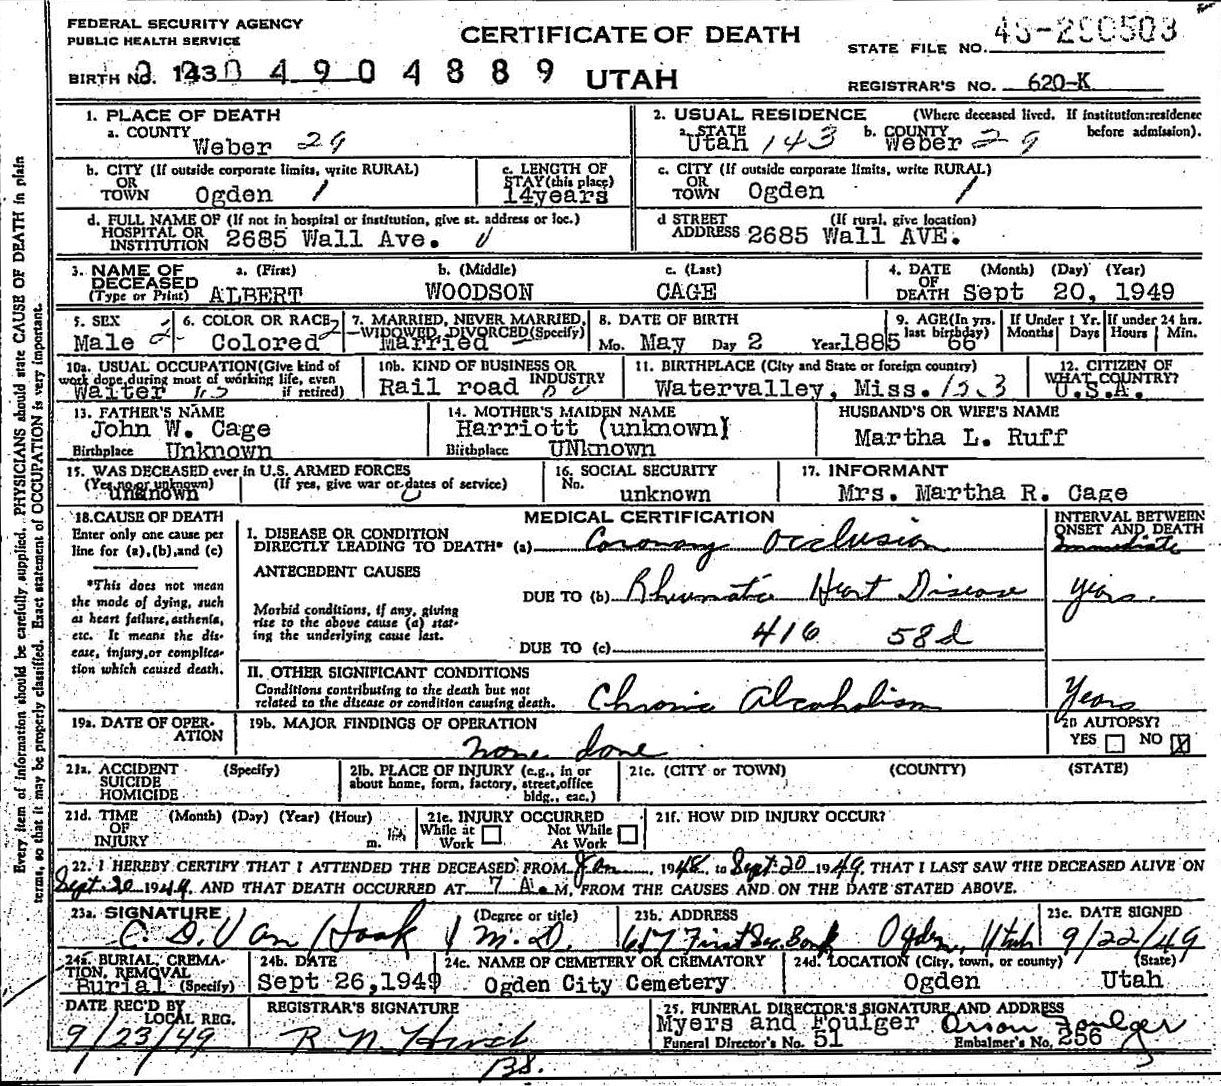 FEDERAL SECURITY AGENCY
PUBLIC HEALTH SERVICE
CERTIFICATE OF DEATH
STATE FILE NO.
BIRTH NO. 143 4 9 0 4 8 8 9 UTAH
REGISTRAR'S NO. 620-K
1. PLACE OF DEATH
a. COUNTY
Weber 29
2. USUAL RESIDENCE (Where deceased lived. If institution: residence before admission).
a. STATE Utah 143 b. COUNTY Weber 29
b. CITY (If outside corporate limits, write RURAL)
OR
TOWN Ogden 1
c. LENGTH OF
STAY (this place)
14years
c. CITY (If outside corporate limits, write RURAL)
OR
TOWN Ogden 1
d. FULL NAME OF (If not in hospital or institution, give st. address or loc.)
HOSPITAL OR
INSTITUTION 2685 Wall Ave.
d STREET (If rural, give location)
ADDRESS 2685 Wall AVE.
3. NAME OF DECEASED
(Type or Print)
a. (First) b. (Middle) c. (Last)
ALBERT WOODSON CAGE
4. DATE OF DEATH (Month) (Day) (Year)
Sept 20, 1949
5. SEX
Male 2
6. COLOR OR RACE
Colored 2
7. MARRIED, NEVER MARRIED,
WIDOWED, DIVORCED (Specify)
Married
8. DATE OF BIRTH
Mo. May Day 2 Year 1885
9. AGE (In yrs. last birthday)
66
If Under 1 Yr. Months Days
If under 24 hrs. Hours Min.
10a. USUAL OCCUPATION (Give kind of
work done during most of working life, even
if retired)
Waiter
10b. KIND OF BUSINESS OR
INDUSTRY
Rail road
11. BIRTHPLACE (City and State or foreign country)
Watervalley, Miss. 123
12. CITIZEN OF
WHAT COUNTRY?
U.S.A.
13. FATHER'S NAME
John W. Cage
Birthplace Unknown
14. MOTHER'S MAIDEN NAME
Harriott (unknown)
Birthplace UNknown
HUSBAND'S OR WIFE'S NAME
Martha L. Ruff
15. WAS DECEASED ever in U.S. ARMED FORCES
(Yes, no or unknown) (If yes, give war or dates of service)
unknown
16. SOCIAL SECURITY
No.
unknown
17. INFORMANT
Mrs. Martha R. Cage
18. CAUSE OF DEATH
Enter only one cause per
line for (a), (b), and (c)
*This does not mean
the mode of dying, such
as heart failure, asthenia,
etc. It means the dis-
ease, injury, or complica-
tion which caused death.
MEDICAL CERTIFICATION
INTERVAL BETWEEN
ONSET AND DEATH
I. DISEASE OR CONDITION
DIRECTLY LEADING TO DEATH* (a) Coronary Occlusion Immediate
ANTECEDENT CAUSES
DUE TO (b) Rhumatic Heart Disease years.
Morbid conditions, if any, giving
rise to the above cause (a) stat-
ing the underlying cause last.
416 58d
DUE TO (c)
II. OTHER SIGNIFICANT CONDITIONS
Conditions contributing to the death but not
related to the disease or condition causing death.
Chronic Alcoholism Years
19a. DATE OF OPER-
ATION
19b. MAJOR FINDINGS OF OPERATION
none done
20 AUTOPSY?
YES NO X
21a. ACCIDENT (Specify)
SUICIDE
HOMICIDE
21b. PLACE OF INJURY (e.g., in or
about home, form, factory, street, office
bldg., eac.)
21c. (CITY or TOWN) (COUNTY) (STATE)
21d. TIME (Month) (Day) (Year) (Hour)
OF
INJURY m.
21e. INJURY OCCURRED
While at Work Not While At Work
21f. HOW DID INJURY OCCUR?
22. I HEREBY CERTIFY THAT I ATTENDED THE DECEASED FROM Jan 1948, to Sept. 20 1949, THAT I LAST SAW THE DECEASED ALIVE ON
Sept. 20 1949 AND THAT DEATH OCCURRED AT 7 A. M, FROM THE CAUSES AND ON THE DATE STATED ABOVE.
23a. SIGNATURE (Degree or title)
C. D. Van Hook M.D.
23b. ADDRESS
617 First Sec. Bank Ogden, Utah
23c. DATE SIGNED
9/22/49
24a. BURIAL, CREMA-
TION, REMOVAL
(Specify)
Burial
24b. DATE
Sept 26, 1949
24c. NAME OF CEMETERY OR CREMATORY
Ogden City Cemetery
24d. LOCATION (City, town, or county) (State)
Ogden Utah
DATE REC'D BY
LOCAL REG.
9/23/49
REGISTRAR'S SIGNATURE
25. FUNERAL DIRECTOR'S SIGNATURE AND ADDRESS
Myers and Foulger Orson Foulger
Funeral Director's No. 51 Embalmer's No. 256
Every item of information should be carefully supplied. PHYSICIANS should state CAUSE OF DEATH in plain
terms, so that it may be properly classified. Exact statement of OCCUPATION is very important.